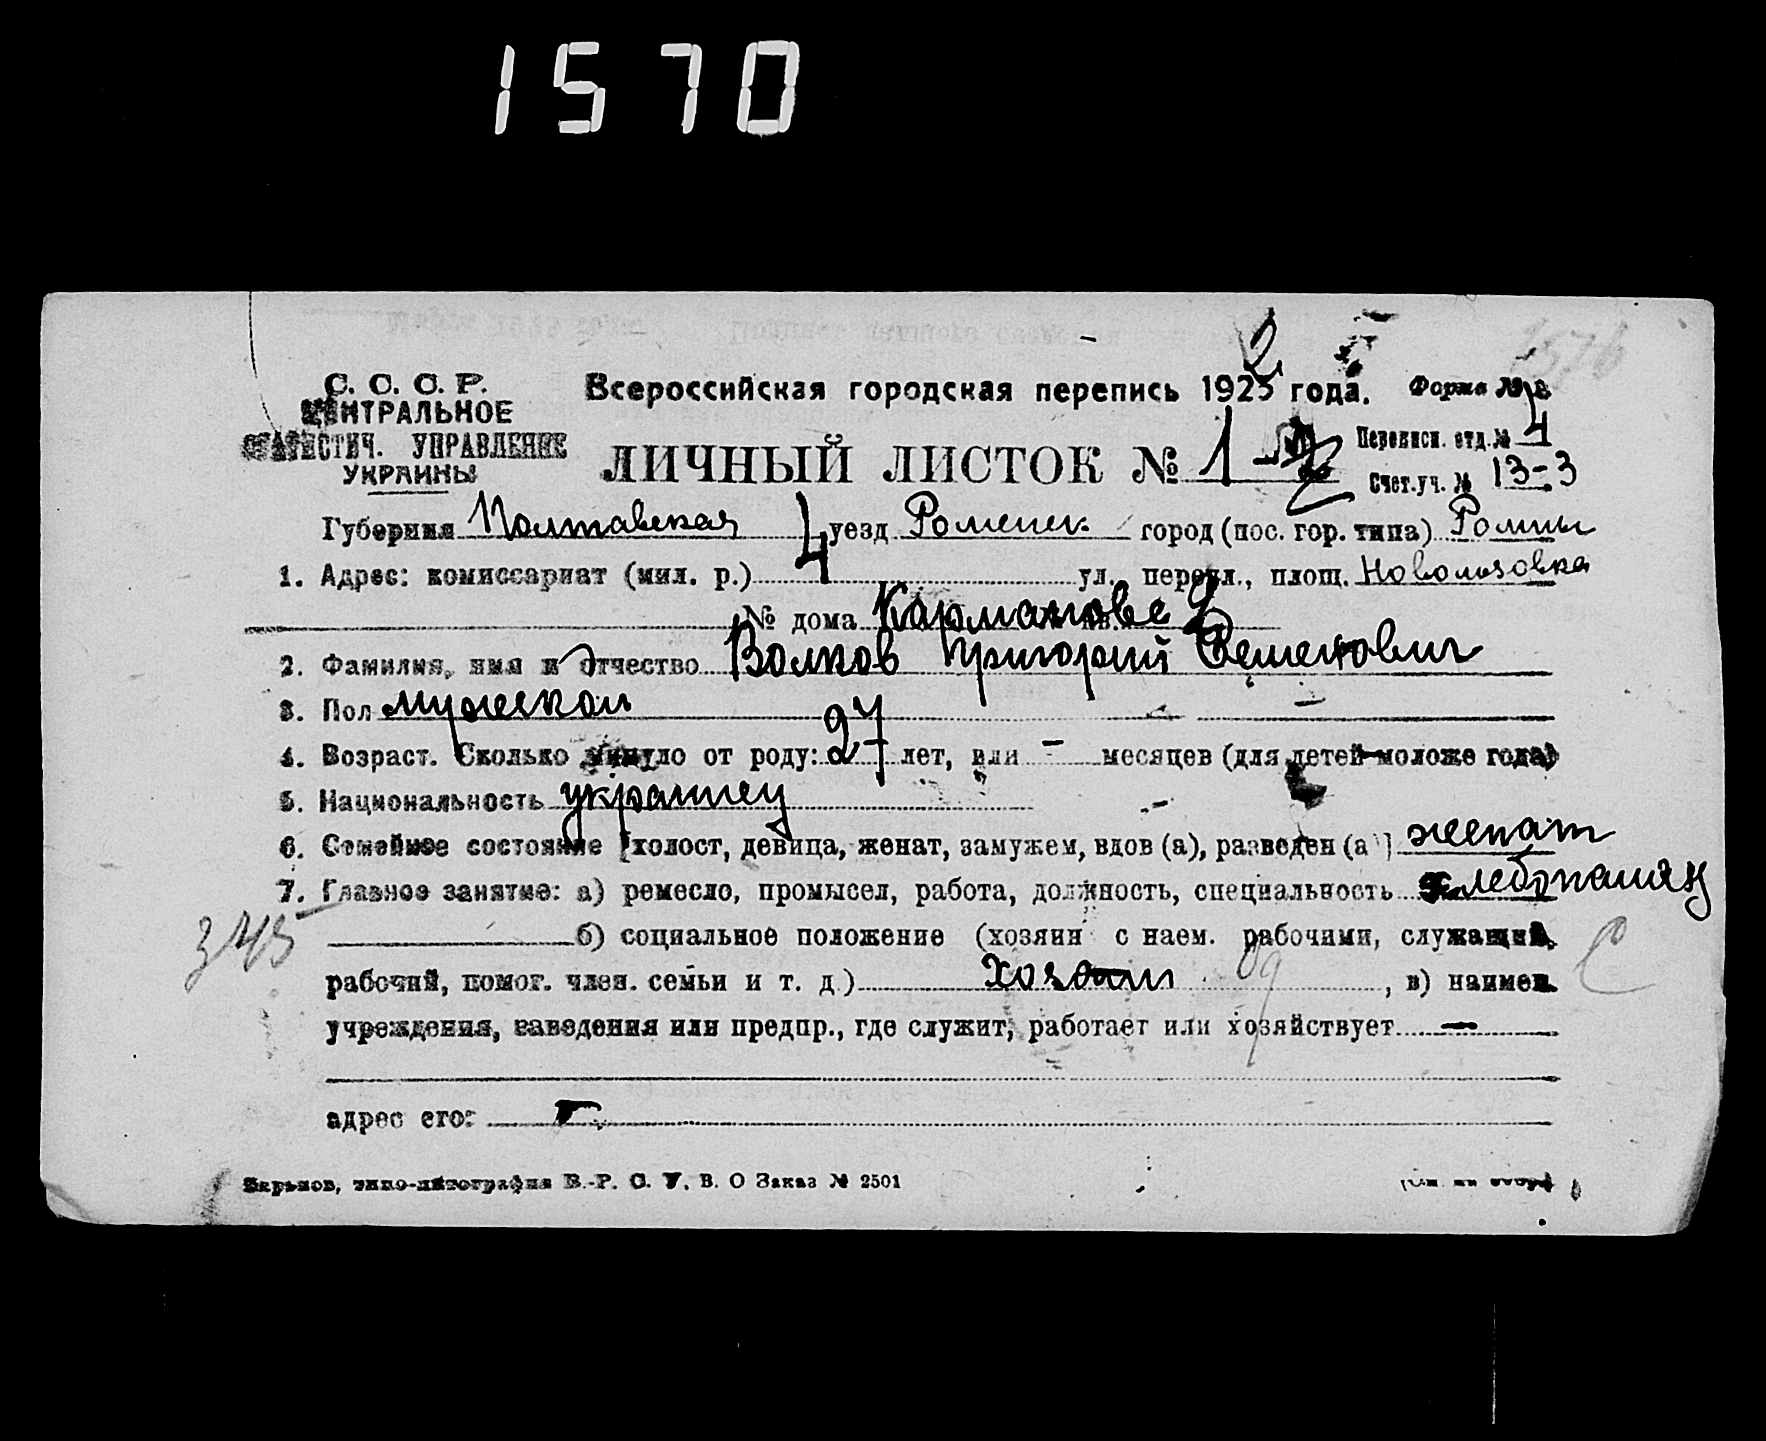 1570
С. С. С. Р.
ЦЕНТРАЛЬНОЕ
СТАТИСТИЧ. УПРАВЛЕНИЕ
УКРАИНЫ
Всероссийская городская перепись 1923 года. Форма №
2
ЛИЧНЫЙ ЛИСТОК № 1-
Переписн. отд. № 4
Счет. уч. № 13-3
Губерния Полтавская уезд Роменск город (пос. гор. типа) Ромны
1. Адрес: комиссариат (мил. р.) 4 ул., переул., площ.
№ дома кв.
2. Фамилия, имя и отчество Волков Григорий Семенович
3. Пол мужской
4. Возраст. Сколько минуло от роду: 27 лет, или - месяцев (для детей моложе года)
5. Национальность украинец
6. Семейное состояние [холост, девица, женат, замужем, вдов (а), разведен (а)] женат
7. Главное занятие: а) ремесло, промысел, работа, должность, специальность хлебопашец
345
б) социальное положение (хозяин с наем. рабочими, служащий,
рабочий, помог. член. семьи и т. д.) хозяин, в) наимен.
учреждения, заведения или предпр., где служит, работает или хозяйствует —
адрес его:
Харьков, типо-литография В.-Р. С. У. В. О Заказ № 2501